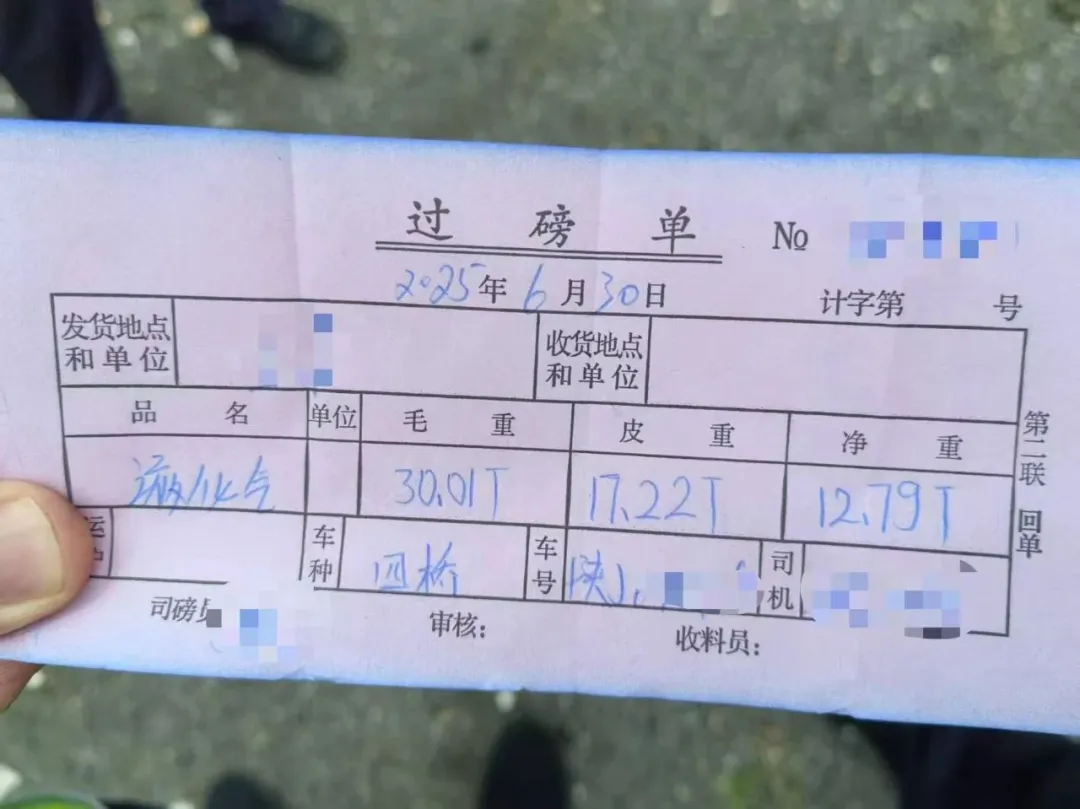 过磅单 №
2025年6月30日 计字第 号
发货地点和单位 收货地点和单位
品名 单位 毛重 皮重 净重
液化气 30.01T 17.22T 12.79T
车种 四桥 车号 陕J. 司机
司磅员 审核： 收料员：
第二联 回单